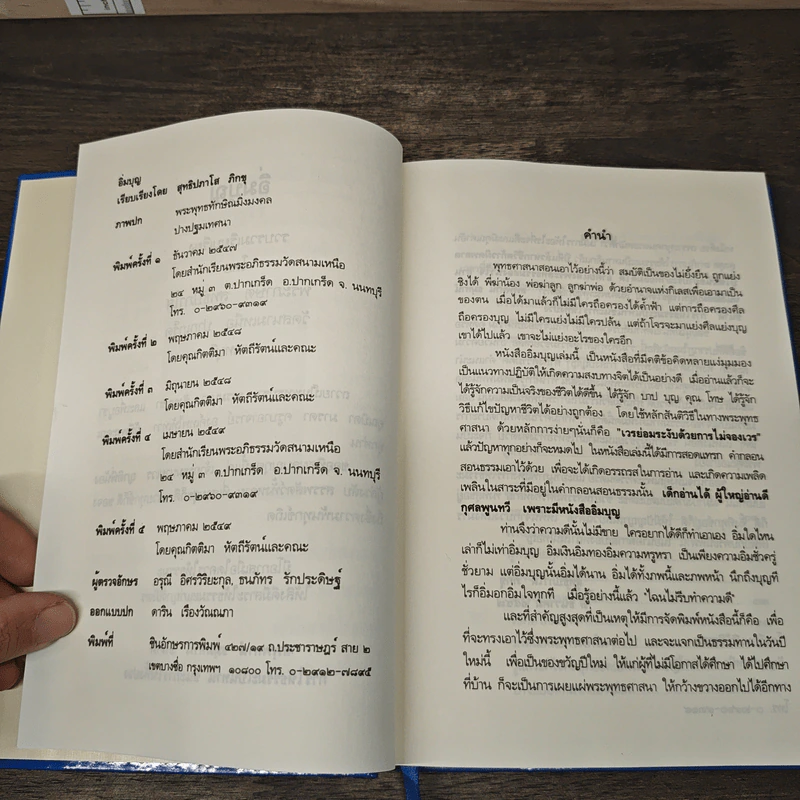 อิ่มบุญ
เรียบเรียงโดย สุทธิปภาโส ภิกขุ
ภาพปก พระพุทธทักษิณมิ่งมงคล
ปางปฐมเทศนา
พิมพ์ครั้งที่ ๑ ธันวาคม ๒๕๔๗
โดยสำนักเรียนพระอภิธรรมวัดสนามเหนือ
๒๔ หมู่ ๓ ต.ปากเกร็ด อ.ปากเกร็ด จ. นนทบุรี
โทร. ๐-๒๙๖๐-๙๓๑๙
พิมพ์ครั้งที่ ๒ พฤษภาคม ๒๕๔๘
โดยคุณกิตติมา หัตถีรัตน์และคณะ
พิมพ์ครั้งที่ ๓ มิถุนายน ๒๕๔๘
โดยคุณกิตติมา หัตถีรัตน์และคณะ
พิมพ์ครั้งที่ ๔ เมษายน ๒๕๔๙
โดยสำนักเรียนพระอภิธรรมวัดสนามเหนือ
๒๔ หมู่ ๓ ต.ปากเกร็ด อ.ปากเกร็ด จ. นนทบุรี
โทร. ๐-๒๙๖๐-๙๓๑๙
พิมพ์ครั้งที่ ๕ พฤษภาคม ๒๕๔๙
โดยคุณกิตติมา หัตถีรัตน์และคณะ
ผู้ตรวจอักษร อรุณี อิศรวิริยะกุล, ธนภัทร รักประดิษฐ์
ออกแบบปก ดาริน เรืองวัณณภา
พิมพ์ที่ ชินอักษรการพิมพ์ ๔๒๗/๑๙ ถ.ประชาราษฎร์ สาย ๒
เขตบางซื่อ กรุงเทพฯ ๑๐๘๐๐ โทร. ๐-๒๙๑๒-๗๘๙๕
คำนำ
พุทธศาสนาสอนเอาไว้อย่างนี้ว่า สมบัติเป็นของไม่ยั่งยืน ถูกแย่ง
ชิงได้ พี่ฆ่าน้อง พ่อฆ่าลูก ลูกฆ่าพ่อ ด้วยอำนาจแห่งกิเลสเพื่อเอามาเป็น
ของตน เมื่อได้มาแล้วก็ไม่มีใครถือครองได้ค้ำฟ้า แต่การถือครองศีล
ถือครองบุญ ไม่มีใครแย่งไม่มีใครปล้น แต่ถ้าโจรจะมาแย่งศีลแย่งบุญ
เขาได้ไปแล้ว เขาจะไม่แย่งอะไรของใครอีก
หนังสืออิ่มบุญเล่มนี้ เป็นหนังสือที่มีคติข้อคิดหลายแง่มุมมอง
เป็นแนวทางปฏิบัติให้เกิดความสงบทางจิตได้เป็นอย่างดี เมื่ออ่านแล้วก็จะ
ได้รู้จักความเป็นจริงของชีวิตได้ดีขึ้น ได้รู้จัก บาป บุญ คุณ โทษ ได้รู้จัก
วิธีแก้ไขปัญหาชีวิตได้อย่างถูกต้อง โดยใช้หลักสันติวิธีในทางพระพุทธ
ศาสนา ด้วยหลักการง่ายๆนั่นก็คือ "เวรย่อมระงับด้วยการไม่จองเวร"
แล้วปัญหาทุกอย่างก็จะหมดไป ในหนังสือเล่มนี้ได้มีการสอดแทรก คำกลอน
สอนธรรมเอาไว้ด้วย เพื่อจะได้เกิดอรรถรสในการอ่าน และเกิดความเพลิด
เพลินในสาระที่มีอยู่ในคำกลอนสอนธรรมนั้น เด็กอ่านได้ ผู้ใหญ่อ่านดี
กุศลพูนทวี เพราะมีหนังสืออิ่มบุญ
ท่านจึงว่าความดีนั้นไม่มีขาย ใครอยากได้ดีก็ทำเอาเอง อิ่มใดไหน
เล่าก็ไม่เท่าอิ่มบุญ อิ่มเงินอิ่มทองอิ่มความหรูหรา เป็นเพียงความอิ่มชั่วครู่
ชั่วยาม แต่อิ่มบุญนั้นอิ่มได้นาน อิ่มได้ทั้งภพนี้และภพหน้า นึกถึงบุญที
ไรก็อิ่มอกอิ่มใจทุกที เมื่อรู้อย่างนี้แล้ว 'ไฉนไม่รีบทำความดี'
และที่สำคัญสูงสุดที่เป็นเหตุให้มีการจัดพิมพ์หนังสือนี้ก็คือ เพื่อ
ที่จะทรงเอาไว้ซึ่งพระพุทธศาสนาต่อไป และจะแจกเป็นธรรมทานในวันปี
ใหม่นี้ เพื่อเป็นของขวัญปีใหม่ ให้แก่ผู้ที่ไม่มีโอกาสได้ศึกษา ได้ไปศึกษา
ที่บ้าน ก็จะเป็นการเผยแผ่พระพุทธศาสนา ให้กว้างขวางออกไปได้อีกทาง